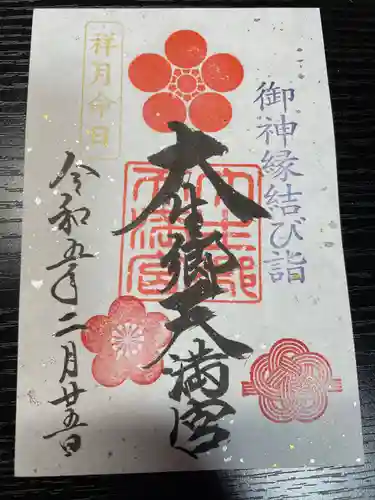 御神縁結び詣
大生郷天満宮
祥月命日
令和五年二月廿五日